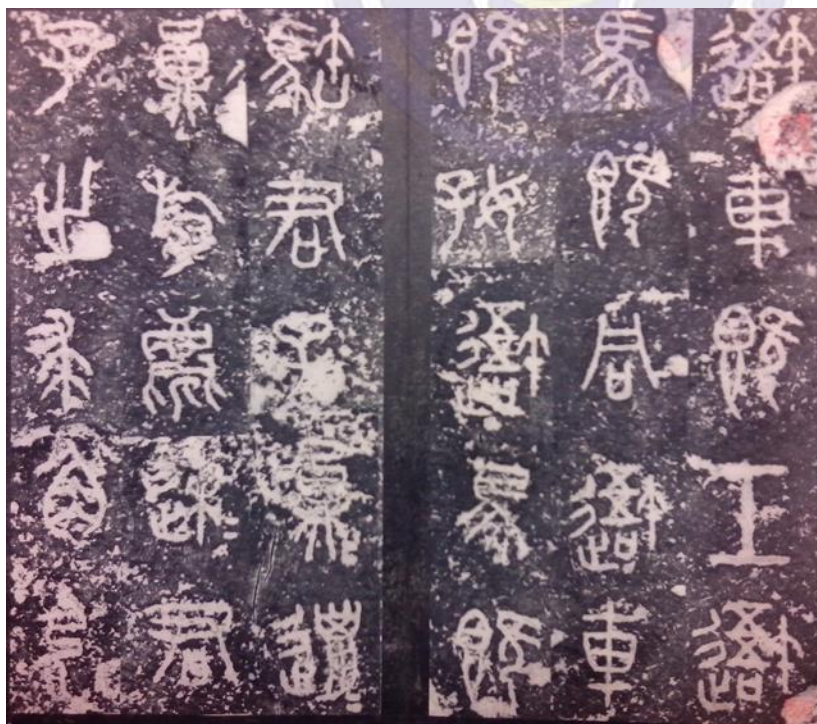 吾車既工吾
馬既同吾車
既好吾馬既
君子員邋
員麀鹿速君
子之求